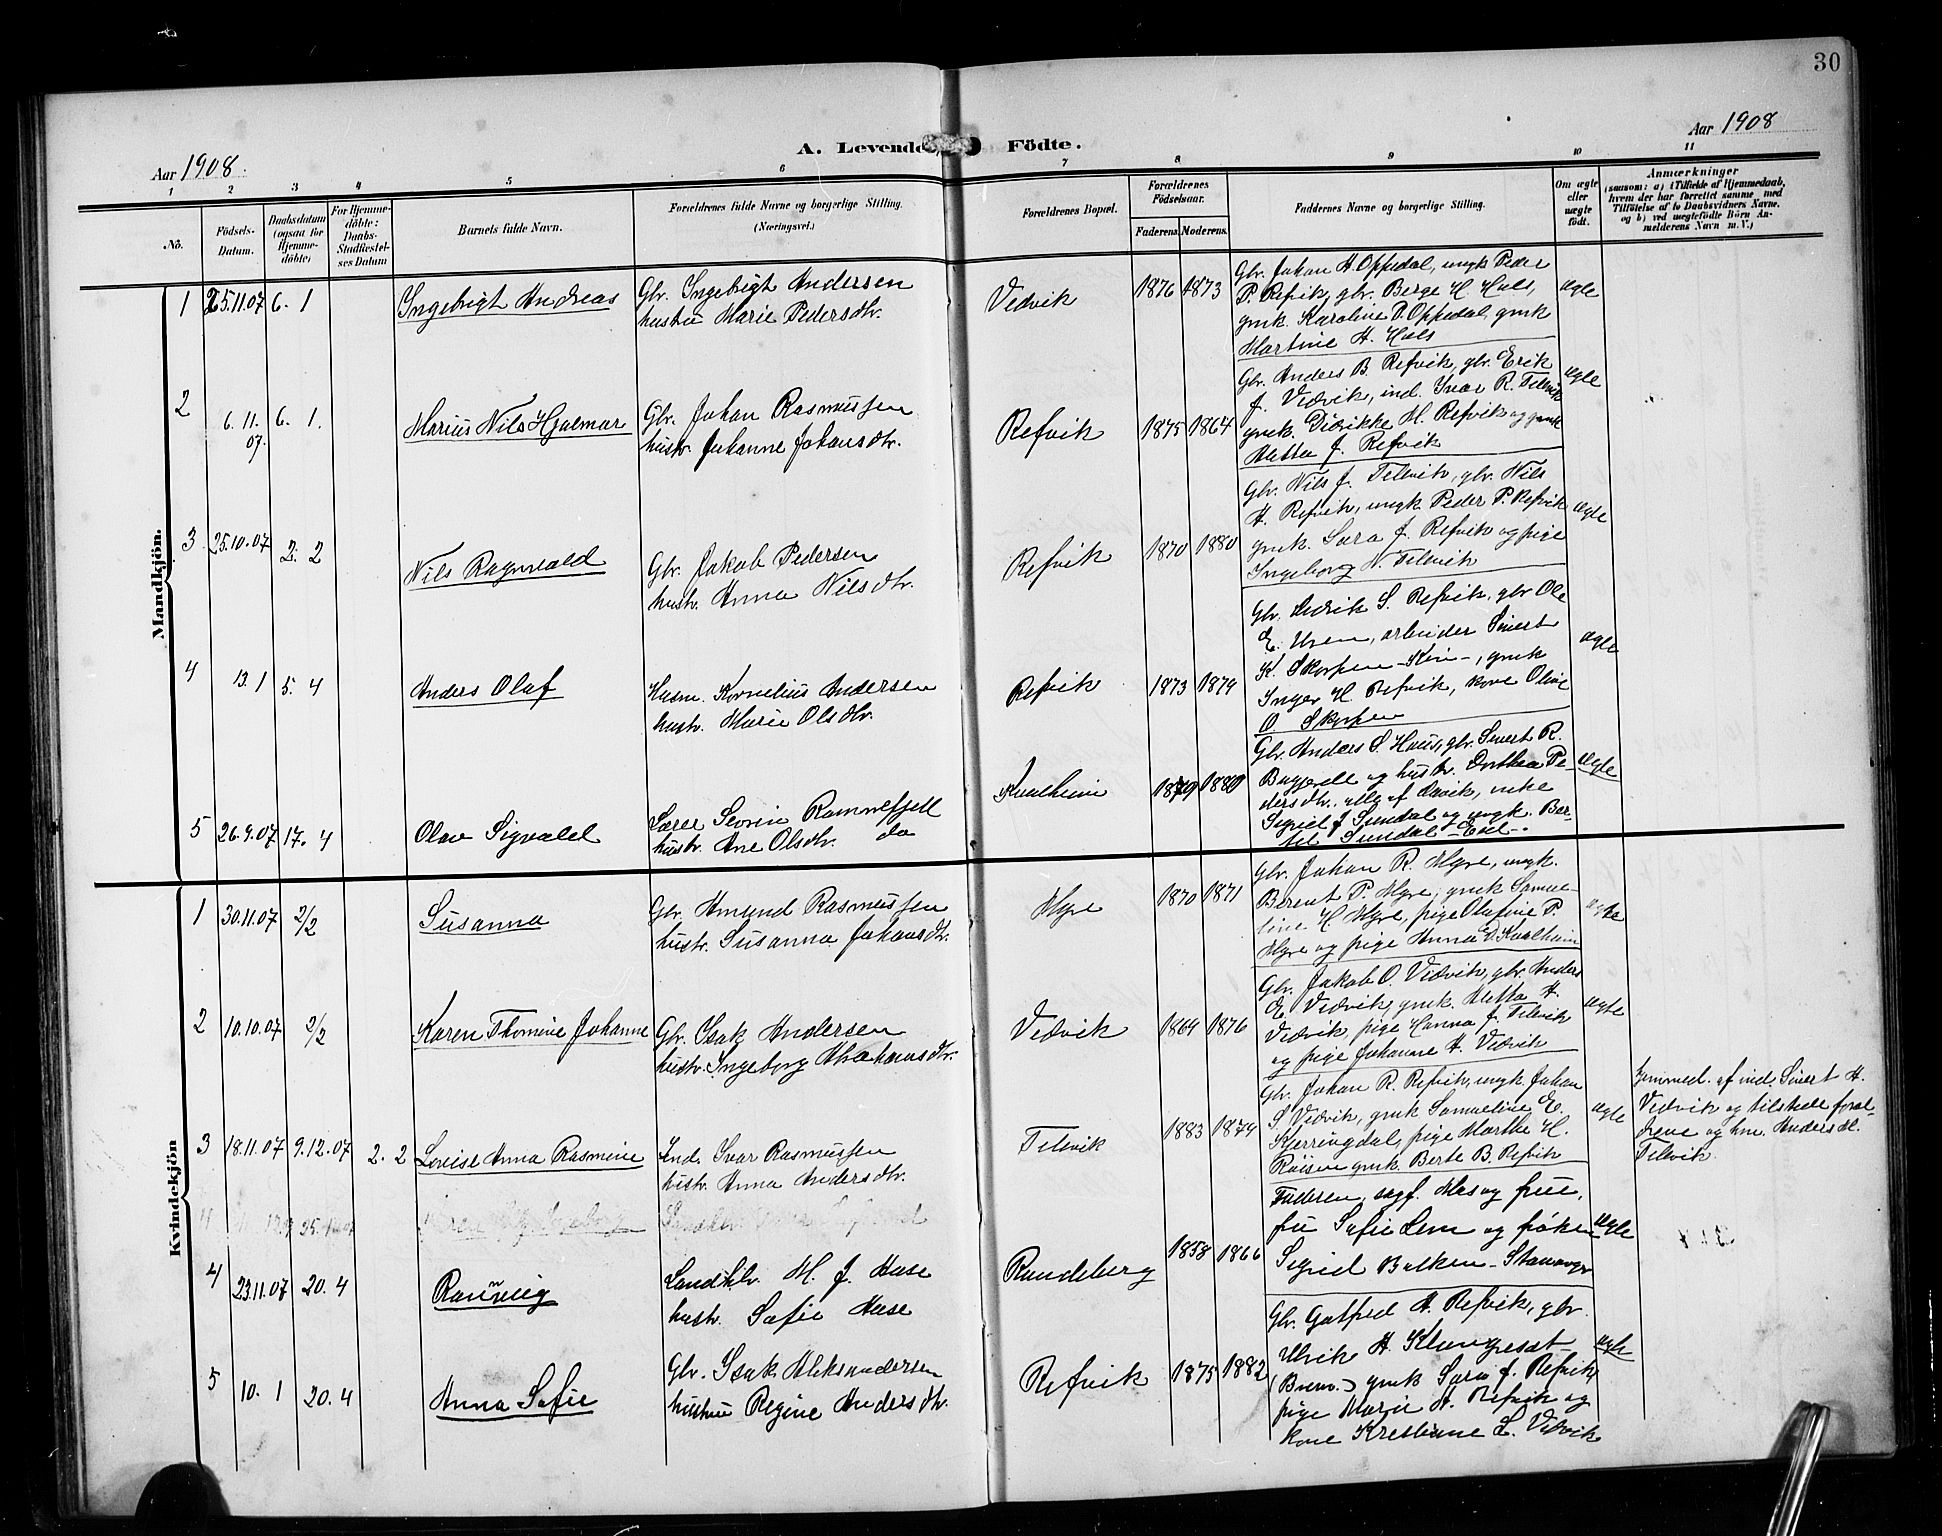 30
Aar 1908.
A. Levende Födte.
Aar 1908
1 2 3 4 5 6 7 8 9 10 11
No.
Födsels-Datum.
Daabsdatum (ogsaa for Hjemme-döbte)
For Hjemme-döbte: Daabs-Stadfæstel-ses Datum
Barnets fulde Navn.
Forældrenes fulde Navne og borgerlige Stilling. (Næringsvei.)
Forældrenes Bopæl.
Forældrenes Födselsaar.
Faderens. Moderens.
Faddernes Navne og borgerlige Stilling.
Om ægte eller uægte födt.
Anmærkninger
(saasom: a) i Tilfælde af Hjemmedaab,
hvem der har forrettet samme med
Tilföielse af to Daabsvidners Navne.
og b) ved uægtefödte Börn An-
melderens Navn m. V.)
Mandkjön.
1 25.11.07 6. 1 Ingebrigt Andreas
Gbr. Ingebrigt Andersen
hustru Marie Pedersdtr.
Vedvik 1876 1873
Gbr. Johan A. Oppedal, ungk Peder
P. Refvik, gbr. Berge H. Hals,
gmk. Karoline P. Oppedal, gmk
Martine A. Hals
ægte
2 6. 11. 07. 6. 1. Marius Nils Hjalmar
Gbr. Johan Rasmussen
hustr. Johanne Johansdtr.
Refvik 1875 1864
Gbr. Anders B. Refvik, gbr. Erik
J. Vedvik, ind. Ivar R. Telvik
gmk. Didrikke M. Refvik og gmk
Aletta J. Refvik
ægte
3 25.10.07 2. 2 Nils Ragnvald
Gbr. Jakob Pedersen
hustr. Anna Nilsdtr.
Refvik 1870 1880
Gbr. Nils J. Tellvik, gbr. Nils
A. Refvik, ungk. Peder P. Refvik
gmk. Sara J. Refvik og pige
Ingeborg N. Tellvik
ægte
4 13. 1 5. 4 Anders Olaf
Husm. Kornelius Andersen
hustr. Marie Olsdtr.
Refvik 1873 1879
Gbr. Didrik S. Refvik, gbr Ole
E. Uren, arbeider Sivert
K. Skorpen - Kin -, gmk
Inger H. Refvik, kone Oline
O. Skorpen
ægte
5 26.9.07 17. 4 Olav Sigvald
Lærer Severin Ramnefjell
hustr. Ane Olsdtr. do
Kvalheim 1879 1880
Gbr. Anders S. Haus, gbr. Sivert R.
og hustr. Dorthea Pe-
dersdtr. alle af Davik, enke
Sigrid J Sundal og ungk. Ber-
tel Sundal - Eid -.
ægte
Kvindekjön
1 30.11.07 2/2 Susanna
Gbr. Amund Rasmussen
hustr. Susanna Johansdtr.
Hgre 1870 1871
Gbr. Johan R. Hgre, ungk.
Berent P. Hgre, gmk Samue-
line H. Hgre, pige Olufine P.
Hgre og pige Anna D. Kvalheim
ægte
2 10.10.07 2/2 Karen Thomine Johanne
Gbr. Isak Andersen
hustr. Ingeborg Abrahamsdtr.
Vedvik 1864 1876
Gbr. Jakob O. Vedvik, gbr. Anders
E. Vedvik, gmk. Aletta A.
Vedvik, pige Hanna J. Tellvik
og pige Johanne A. Vedvik
ægte
3 18.11.07 9.12.07 2. 2 Lovise Anna Rasmine
Ind. Ivar Rasmussen
hustr. Anna Andersdtr.
Tellvik 1883 1879
Gbr. Johan R. Refvik, ungk. Johan
S. Vedvik, gmk Samueline E.
Kjerringdal, pige Marthe H.
Röisen gmk. Berte B. Refvik
ægte
hjemmed. af ind. Sivert A.
Vedvik og tilstede foræl-
drene og hm. Anders M.
Tellvik.
4 23.11.07 20. 4 Rannveig
Landhdl. M. J. Aase
hustr. Sofie Aase
Randeberg 1858 1866
Faderen, sagf. Aas og frue,
fru Sofie Lem og fröken
Sigrid Bakken - Stavanger
ægte
5 10. 1 20. 4 Anna Sofie
Gbr. Isak Aleksandersen
hustru Regine Andersdtr.
Refvik 1875 1882
Gbr. Gotfred A. Refvik, gbr.
Ulrik A. Klungreset
(Brem.) gmk Sara J. Refvik,
pige Marie A. Refvik og
kone Kristiane L. Vedvik
ægte